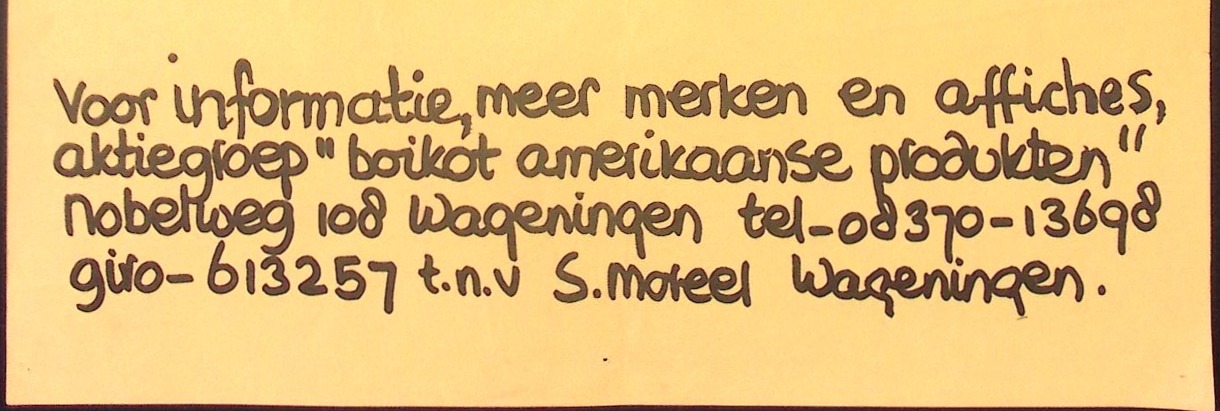 Voor informatie, meer merken en affiches,
aktiegroep "boikot amerikaanse produkten"
Nobelweg 108 Wageningen tel-08370-13698
giro-613257 t.n.v S. Moreel Wageningen.